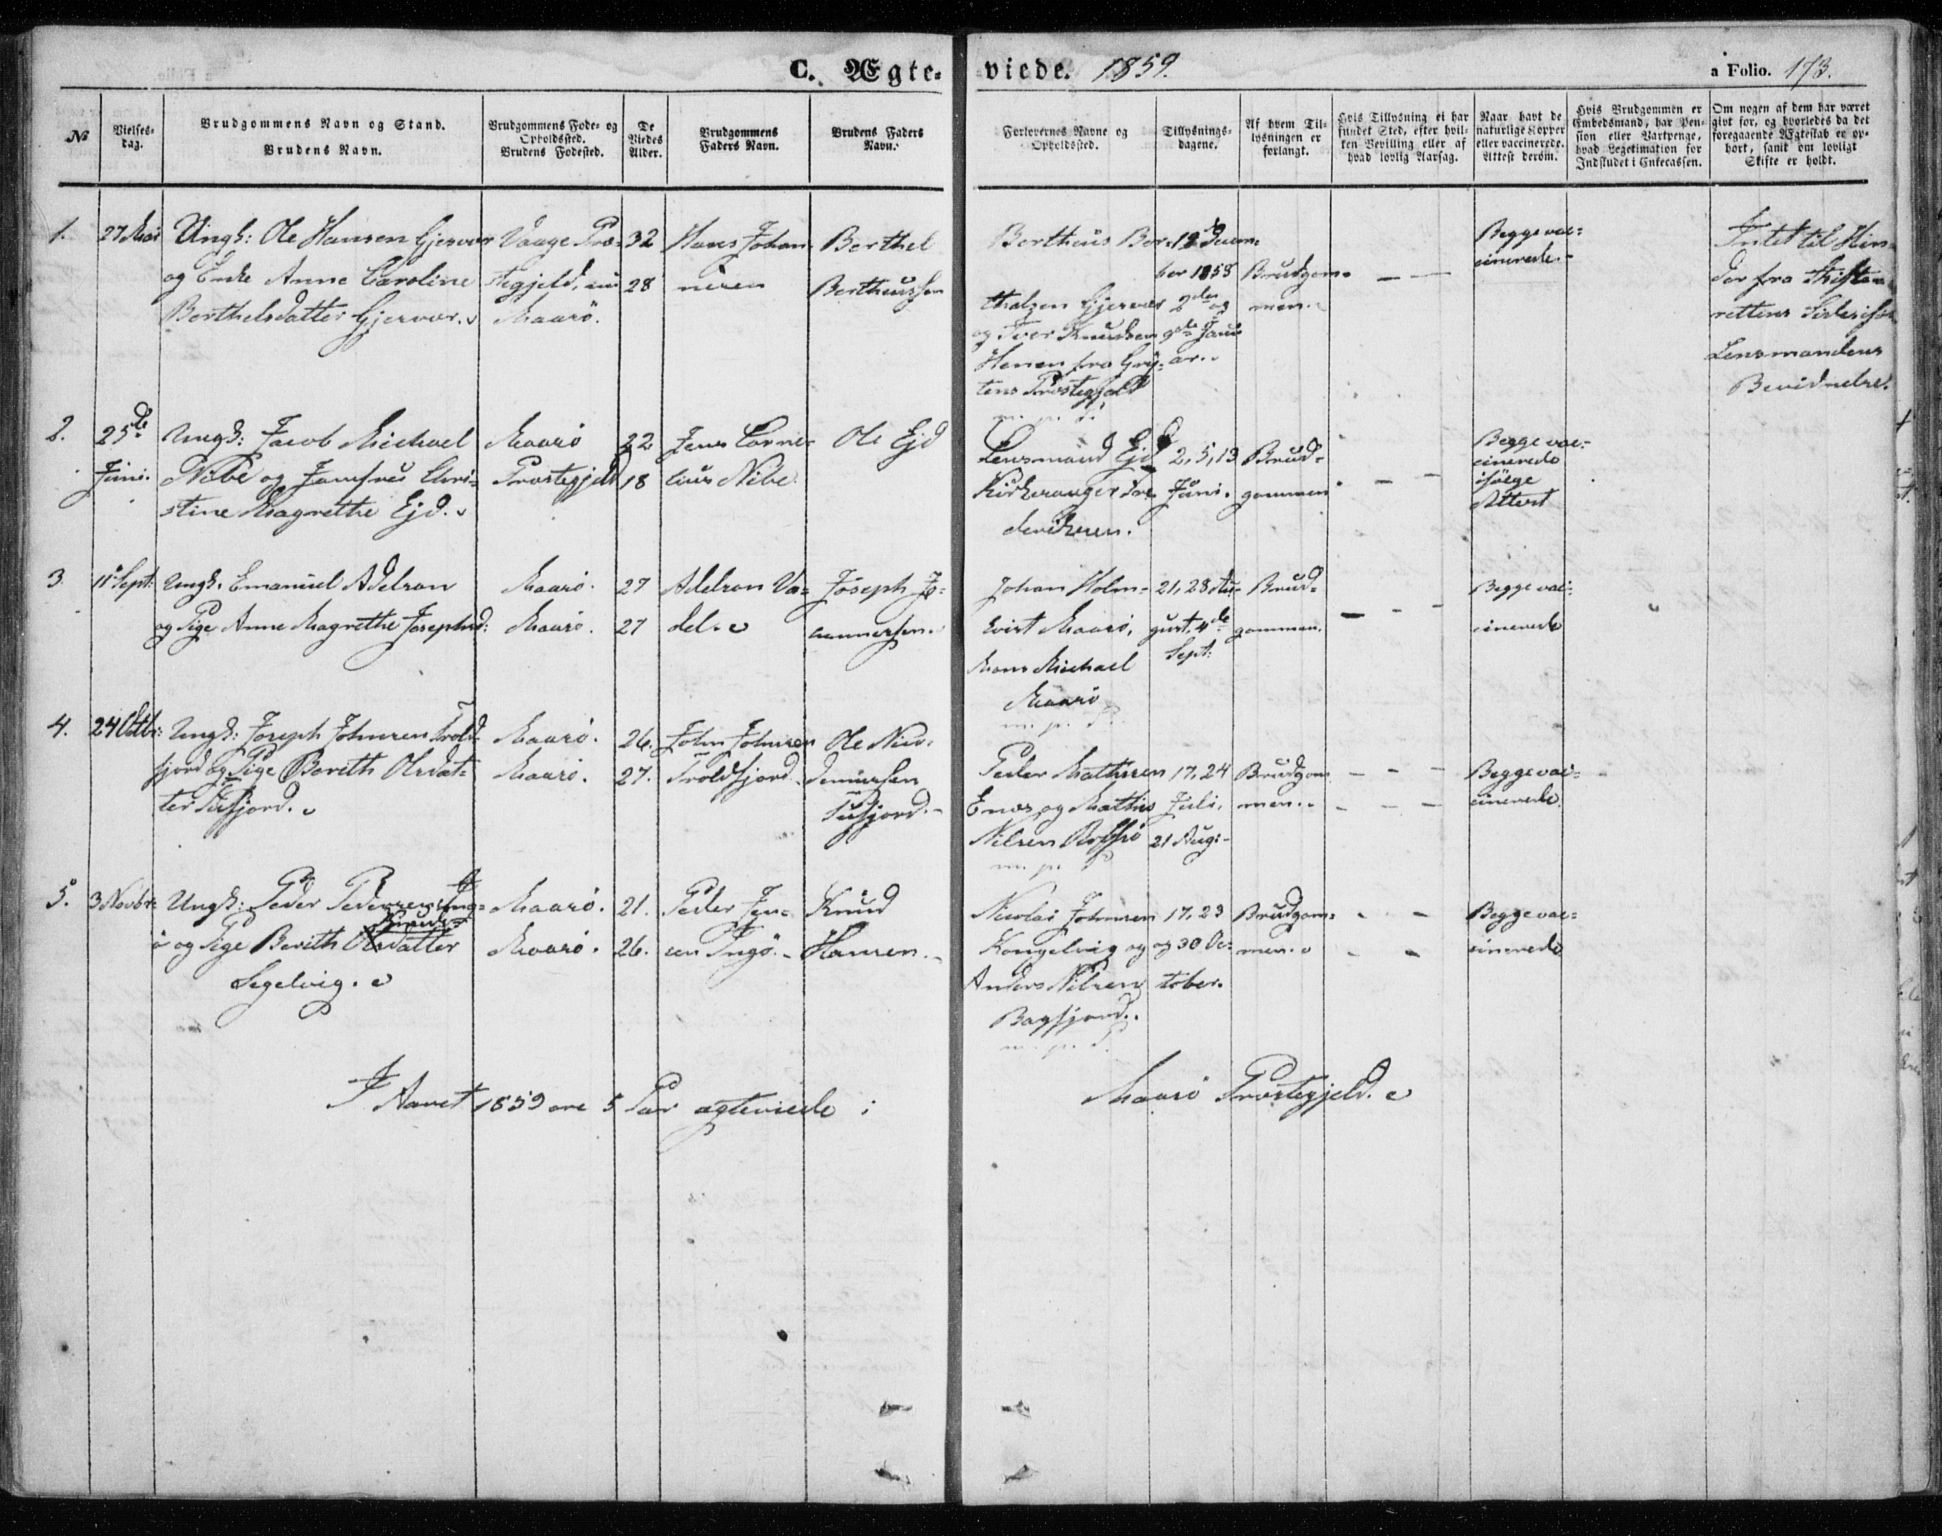 C. Ægte-
viede. 1859.
a Folio. 173.
No
Vielses-
dag.
Brudgommens Navn og Stand.
Brudens Navn.
Brudgommens Fode- og
Opholdssted.
Brudens Fodested.
De
Viedes
Alder.
Brudgommens
Faders Navn.
Brudens Faders
Navn.
Forlovernes Navne og
Opholdssted.
Tillysnings-
dagene.
Af hvem Til-
lysningen er
forlangt.
Hvis Tillysning ei har
fundet Sted, efter hvil-
ken Bevilling eller af
hvad lovlig Aarsag.
Naar havt de
naturlige Kopper
eller vaccinerede.
Attest derom.
Hvis Brudgommen er
Embedsmand, har Pen-
sion eller Vartpenge,
hvad Legitimation for
Indskudet i Enkecassen.
Om nogen af dem har været
givt for, og hvorledes da det
foregaaende Ægteskab er op-
hørt, samt om lovligt
Skifte er holdt.
1.
27 Mai
Ungk: Ole Hansen Gjesvær
og Enke Anne Caroline
Berthelsdatter Gjesvær.
Vaage Præ-
stegjeld, nu
Maasö.
32
28
Hans Johan-
nesen
Berthel
Bertheussen
Bertheus Ber-
thelsen Gjesvær
og Iver Knudsen
Henen fra Gry-
tens Præstegjeld
m. p. P.
19 Decem-
ber 1858
2den og
9de Janu-
ar.
Brudgom-
men.
Begge vac-
cinerede.
Intet til Hin-
der fra Skifte-
rettens Side ifölge
Lensmandens
Bevidnelse.
2.
25de
Juni.
Ungk: Jacob Michael
Nibe og Jomfrue Chri-
stine Magrethe Ejd.
Maasö
Præstegjeld
22
18
Jens Corne-
lius Nibe
Ole Ejd
Lensmand Ejd
Kirkesanger Fre-
deriksen.
2, 5, 13
Juni.
Brud-
gommen
Begge vac-
cinerede
ifölge
Attest
3
11 Sept.
Ungk. Emanuel Adelson
og Pige Anne Magrethe Josephsd:
Maasö.
Maasö.
27
27
Joseph Jo-
hannessen.
Johan Holm-
Maasö,
Mons Michael
Maasö
m. p. P.
21, 28 Au-
gust, 4de
Sept:
Brud-
gommen.
Begge vac-
cinerede
4.
24 Octbr:
Ungk: Joseph Johnsen Trold-
fjord og Pige Bereth Olsdat-
ter Tufjord.
Maasö.
Maasö.
26.
27.
John Johnsen
Troldfjord
Ole Nico-
demussen
Tufjord.
Peder Mathisen
og Mathis
Nilsen Rolfsö
m. p. P
17, 24
Juli,
21 Aug:
Brudgom-
men.
Begge vac-
cinerede
5.
3 Novbr:
Ungk: Peder Pedersen Ing-
Knuds-
ö og Pige Bereth Olsdatter
Segelvig.
Maasö.
Maasö.
21.
26.
Peder Jen-
sen Ingö.
Knud
Hansen.
Nicolai Johnsen
Kongelvig og
Anders Nilsen
Bagfjord.
m. p. P.
17, 23
og 30 Oc-
tober.
Brudgom-
men.
Begge vac-
cinerede
I Aaret 1859 ere 5 Par ægteviede i
Maasö Præstegjeld.